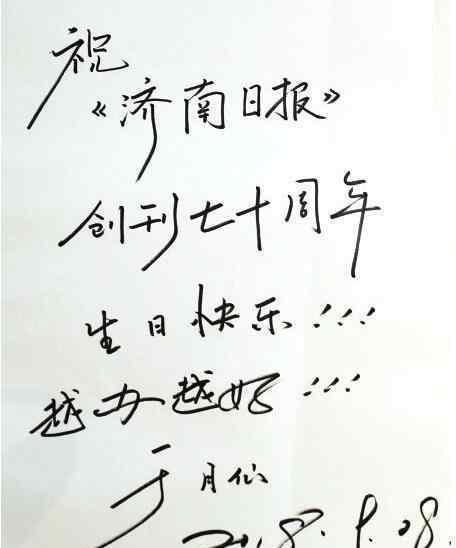 祝
《济南日报》
创刊七十周年
生日快乐!!!
越办越好!!!
于月仙
2018.9.08